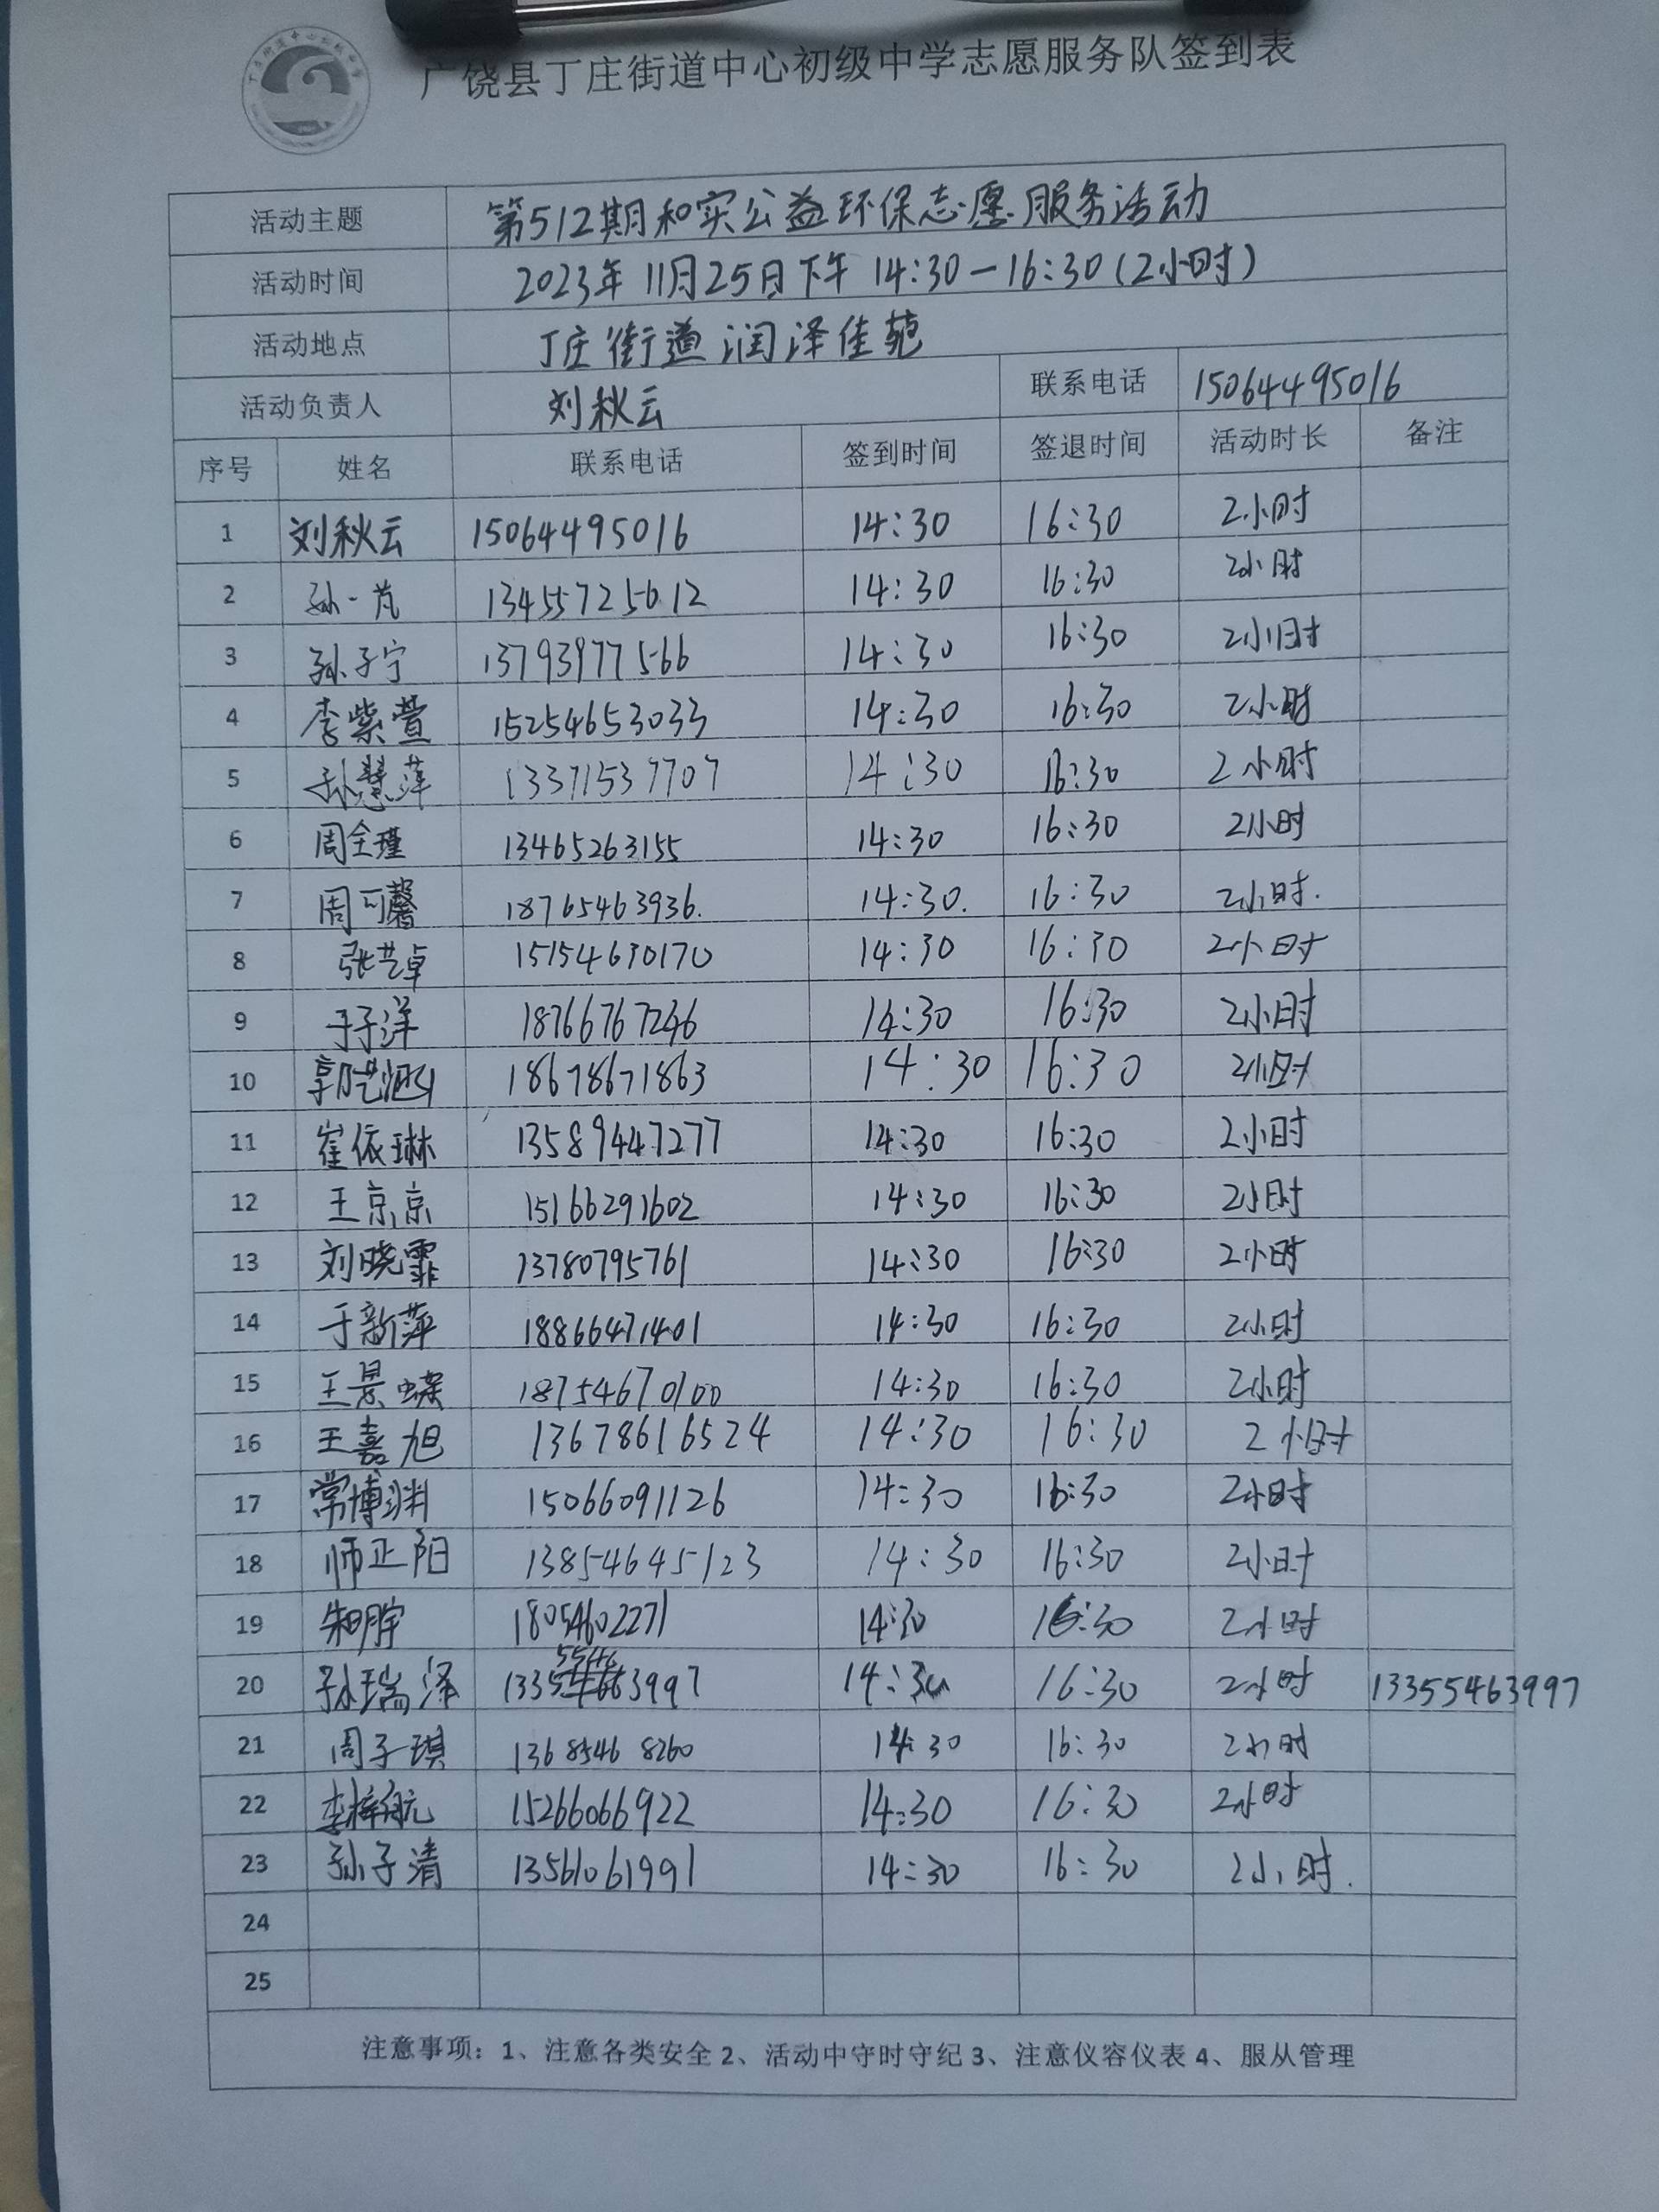 广饶县丁庄街道中心初级中学志愿服务队签到表
活动主题 第512期和实公益环保志愿服务活动
活动时间 2023年11月25日下午 14:30-16:30(2小时)
活动地点 丁庄街道润泽佳苑
活动负责人 刘秋云 联系电话 15064495016
序号 姓名 联系电话 签到时间 签退时间 活动时长 备注
1 刘秋云 15064495016 14:30 16:30 2小时
2 孙一芃 13455725612 14:30 16:30 2小时
3 孙子宁 13793977566 14:30 16:30 2小时
4 李紫萱 15254653033 14:30 16:30 2小时
5 孙慧萍 13371537707 14:30 16:30 2小时
6 周全瑾 13465263155 14:30 16:30 2小时
7 周可馨 18765463936. 14:30. 16:30 2小时.
8 张艺卓 15154630170 14:30 16:30 2小时
9 于子洋 18766767246 14:30 16:30 2小时
10 18678671863 14:30 16:30 2小时
11 崔依琳 13589447277 14:30 16:30 2小时
12 王京京 15166291602 14:30 16:30 2小时
13 刘晓霏 13780795761 14:30 16:30 2小时
14 于新萍 18866471401 14:30 16:30 2小时
15 王景蝶 18754670100 14:30 16:30 2小时
16 王嘉旭 13678616524 14:30 16:30 2小时
17 常博渊 15066091126 14:30 16:30 2小时
18 师正阳 13854645123 14:30 16:30 2小时
19 18054602271 14:30 16:30 2小时
20 孙瑞泽 14:30 16:30 2小时 13355463997
21 周子琪 13685468260 14:30 16:30 2小时
22 李梓航 15266066922 14:30 16:30 2小时
23 孙子清 13561061991 14:30 16:30 2小时.
24
25
注意事项：1、注意各类安全 2、活动中守时守纪 3、注意仪容仪表 4、服从管理